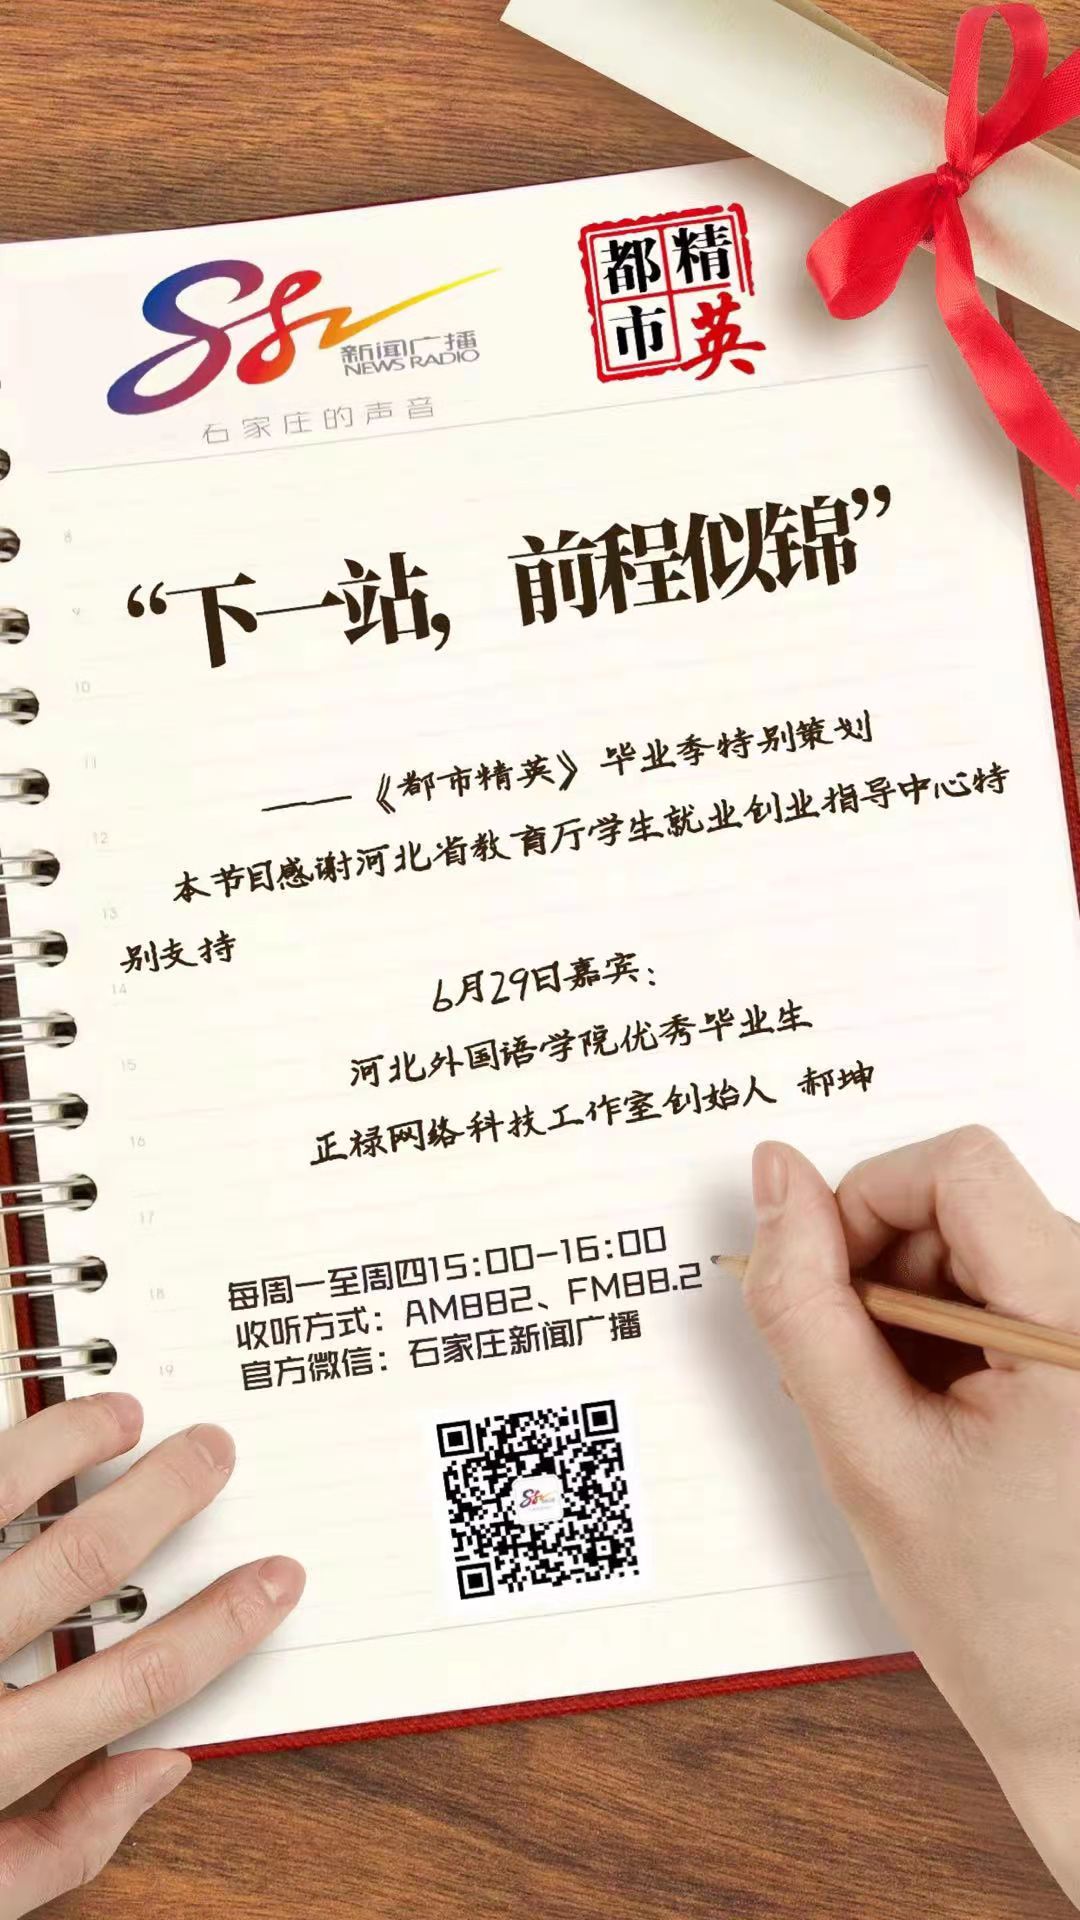 882
新闻广播
NEWS RADIO
石家庄的声音
都市精英
“下一站，前程似锦”
——《都市精英》毕业季特别策划
本节目感谢河北省教育厅学生就业创业指导中心特
别支持
6月29日嘉宾：
河北外国语学院优秀毕业生
正禄网络科技工作室创始人 郝坤
每周一至周四15:00-16:00
收听方式：AM882、FM88.2
官方微信：石家庄新闻广播
8
9
10
11
12
13
14
15
16
17
18
19